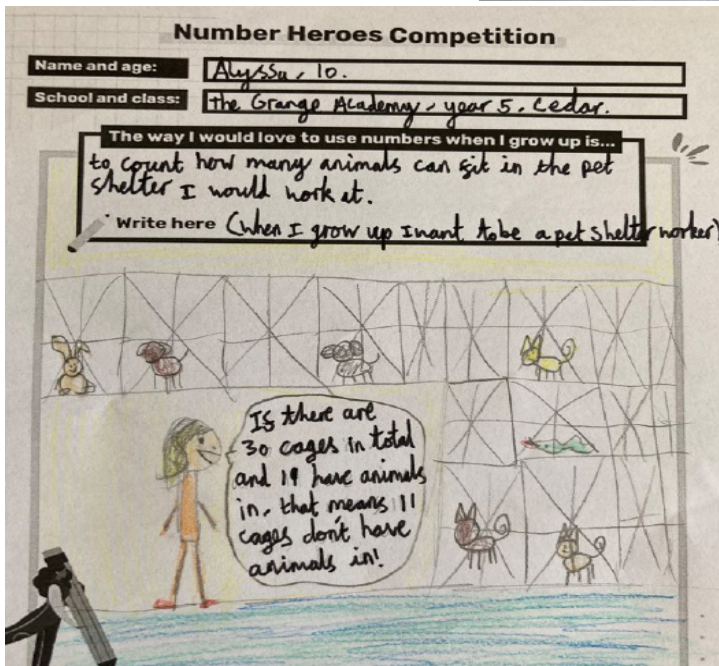 Number Heroes Competition
Name and age: Alyssa, 10.
School and class: The Grange Academy, year 5, Cedar.
The way I would love to use numbers when I grow up is...
to count how many animals can fit in the pet
shelter I would work at.
Write here (When I grow up I want to be a pet shelter worker)
If there are
30 cages in total
and 19 have animals
in, that means 11
cages don't have
animals in!